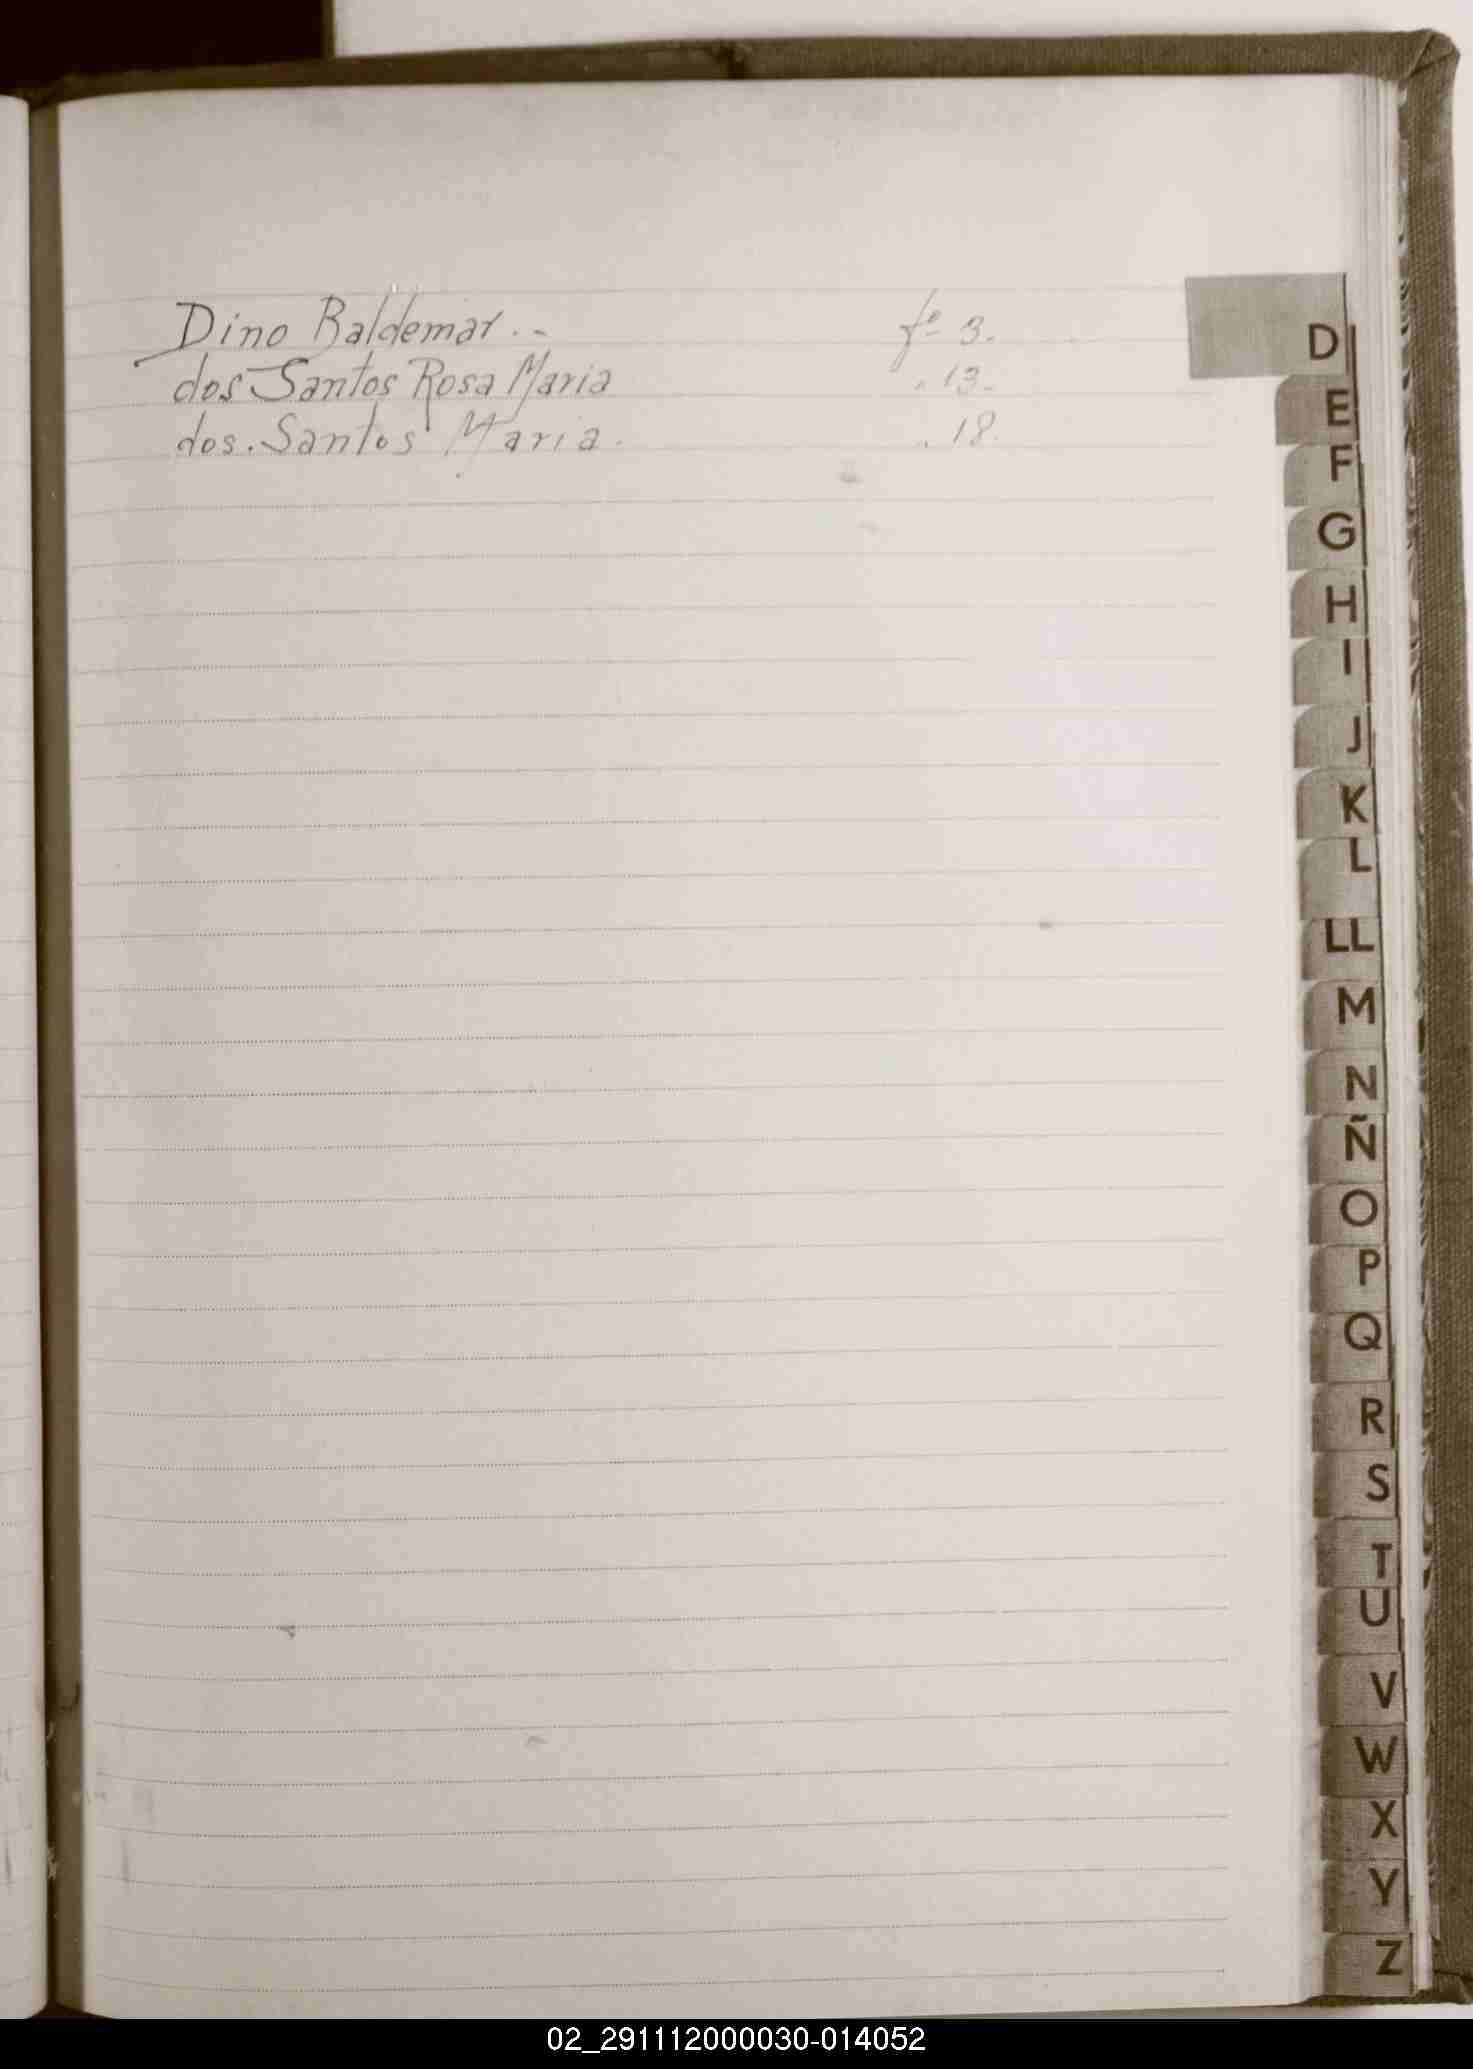 Dino Baldemar . - fº 3.
dos Santos Rosa Maria . 13.
dos . Santos Maria . . 18.
D
E
F
G
H
I
J
K
L
LL
M
N
Ñ
O
P
Q
R
S
T
U
V
W
X
Y
Z
02_291112000030-014052